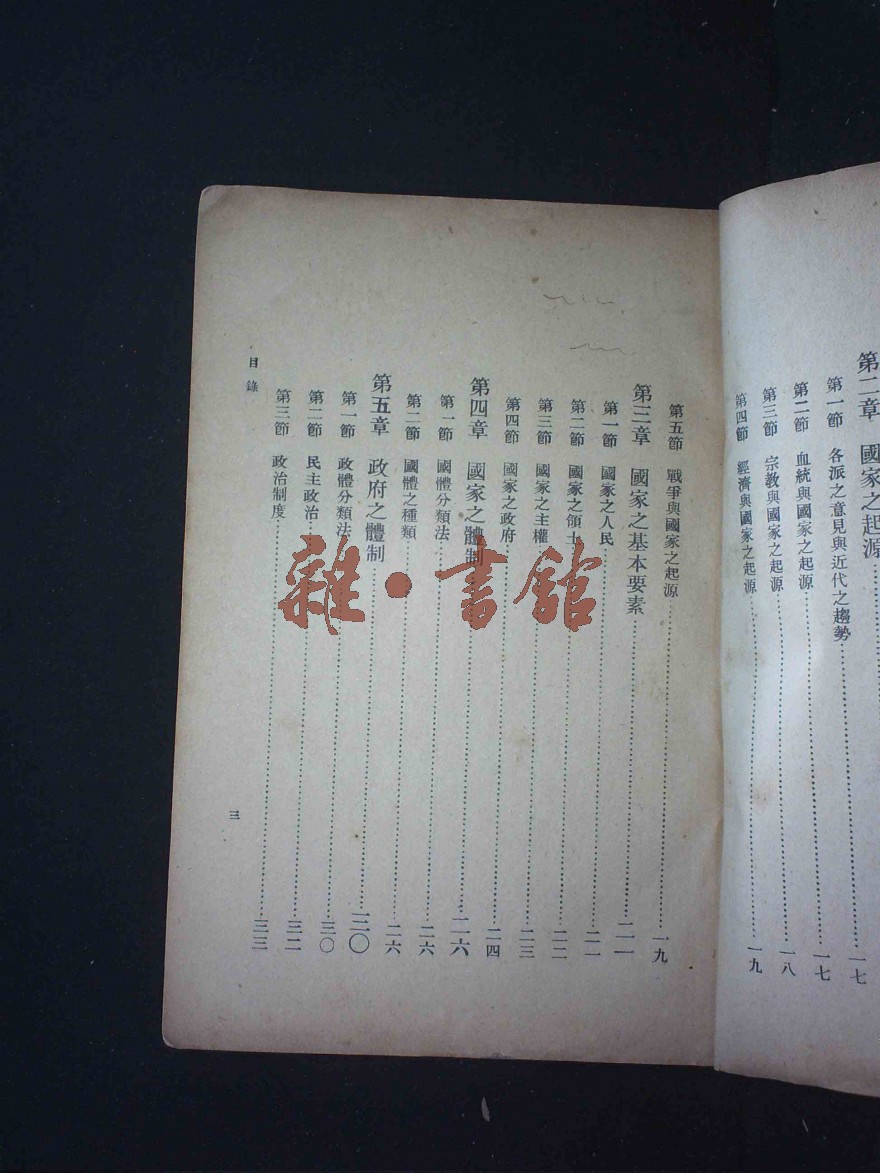 第二章　國家之起源
第一節　各派之意見與近代之趨勢……一七
第二節　血統與國家之起源……一七
第三節　宗教與國家之起源……一八
第四節　經濟與國家之起源……一九
第五節　戰爭與國家之起源……一九
第三章　國家之基本要素……二一
第一節　國家之人民……二一
第二節　國家之領土……二二
第三節　國家之主權……二三
第四節　國家之政府……二四
第四章　國家之體制……二六
第一節　國體分類法……二六
第二節　國體之種類……二六
第五章　政府之體制……三〇
第一節　政體分類法……三〇
第二節　民主政治……三二
第三節　政治制度……三三
目錄
三
雜·書館